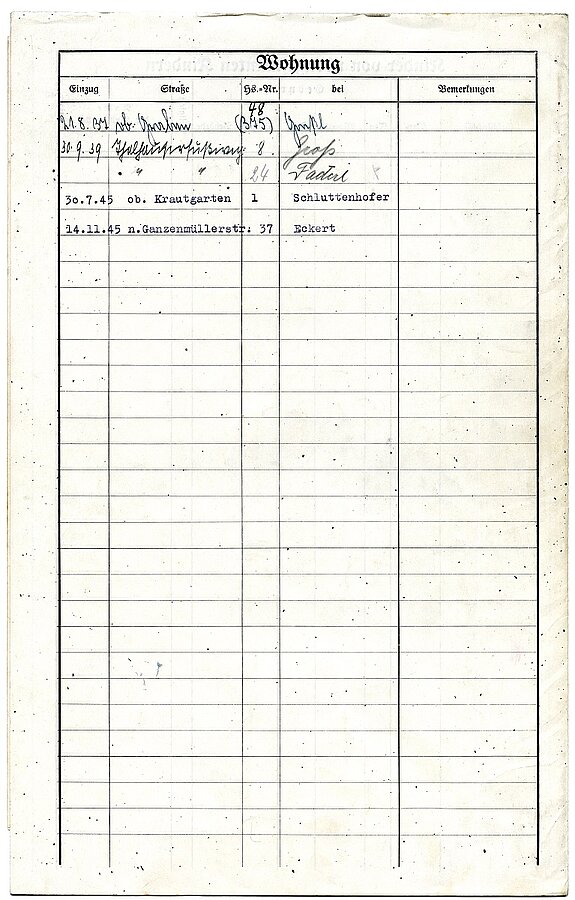 Wohnung
Einzug Straße Hs.-Nr. bei Bemerkungen
48
21.8.37 ob. (375)
30.9.39 8. Groß
" " 24 Faderl
30.7.45 ob. Krautgarten 1 Schluttenhofer
14.11.45 n.Ganzenmüllerstr. 37 Eckert